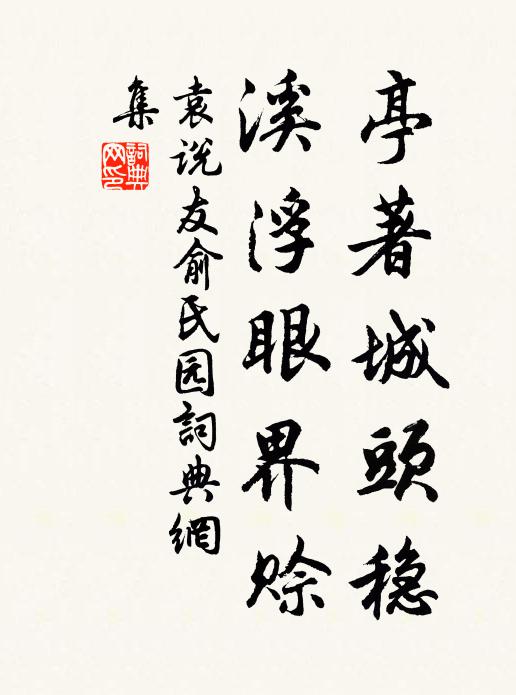 亭著城頭穏
溪浮眼界赊
袁说友俞氏园詞典網
集
詞典网印